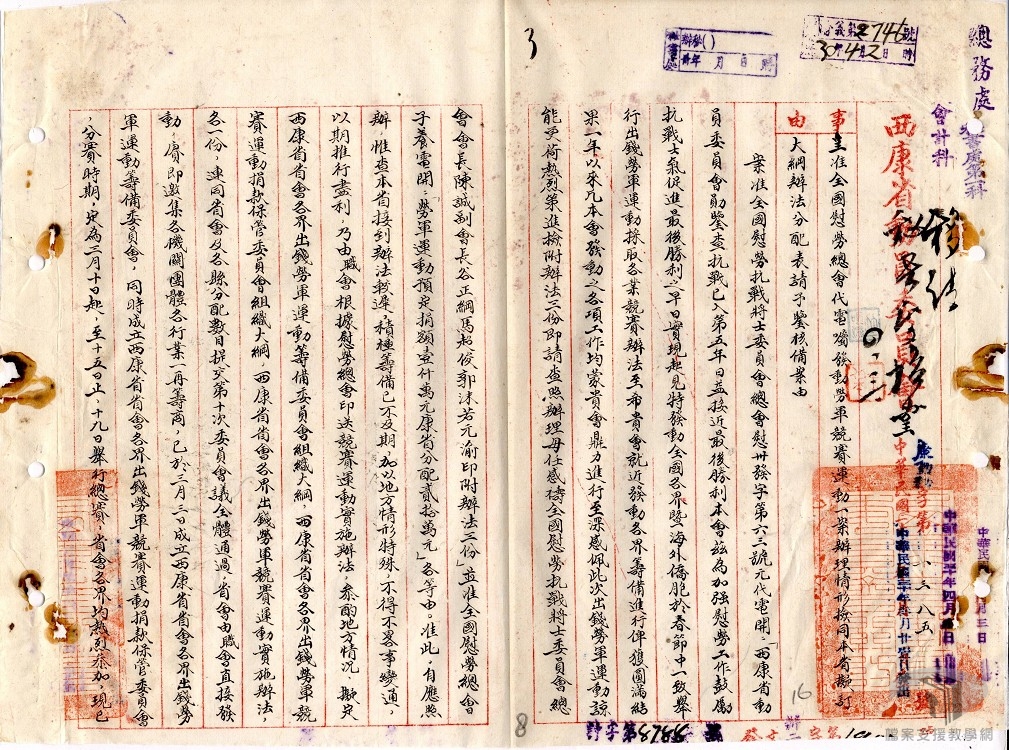 總務處
會計科
西康省動員委員會
中華民國
事由
呈准全國慰勞總會代電囑發動勞軍競賽運動一案辦理情形檢同本省擬訂
大綱辦法分配表請予鑒核備案由
案准全國慰勞抗戰將士委員會總會慰卅發字第六三號元代電開：「西康省動
員委員會勛鑒查抗戰已入第五年日益接近最後勝利本會茲為加強慰勞工作鼓勵
抗戰士氣促進最後勝利之早日實現起見特發動全國各界暨海外僑胞於春節中一致舉
行出錢勞軍運動採取各業競賽辦法至希貴會就近發動各界籌備進行俾獲圓滿結
果一年以來凡本會發動之各項工作均蒙貴會鼎力進行至深感佩此次出錢勞軍運動諒
能更荷熱烈策進檢附辦法三份即請查照辦理毋任感禱全國慰勞抗戰將士委員會總
會會長陳誠副會長谷正綱馬超俊郭沫若元渝印附辦法三份」並准全國慰勞總會
子養電開：「勞軍運動預定捐額壹仟萬元康省分配貳拾萬元」各等由。准此，自應照
辦，惟查本省接到辦法較遲，積極籌備已不及期，加以地方情形特殊，不得不畧事變通，
以期推行盡利，乃由職會根據慰勞總會印送競賽運動實施辦法，參酌地方情況，擬定
西康省省會各界出錢勞軍運動籌備委員會組織大綱，西康省省會各界出錢勞軍競
賽運動捐款保管委員會組織大綱，西康省省會各界出錢勞軍競賽運動實施辦法，
各一份，連同省會及各縣分配數目提交第十次委員會議全體通過，省會由職會直接發
動，賡即邀集各機關團體各行業一再籌商，已於三月三日成立西康省省會各界出錢勞
軍運動籌備委員會，同時成立西康省省會各界出錢勞軍競賽運動捐款保管委員會
，分賽時期，定為三月十日起，至十五日止，十九日舉行總賽，省會各界均熱烈參加，現已
3
8
16
2746
檔案支援教學網